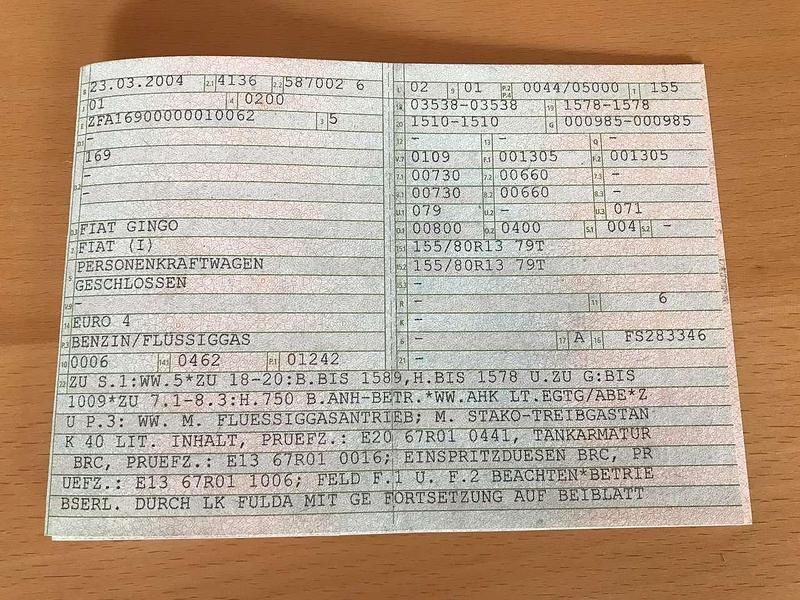 B 23.03.2004 2.1 4136 2.2 587002 6
J 01 4 0200
E ZFA16900000010062 3 5
D.1 -
169
-
D.2 -
D.3 FIAT GINGO
2 FIAT (I)
PERSONENKRAFTWAGEN
GESCHLOSSEN
V.9 -
14 EURO 4
P.3 BENZIN/FLÜSSIGGAS
10 0006 14.1 0462 P.1 01242
L 02 9 01 P.2 P.4 0044/05000 T 155
18 03538-03538 19 1578-1578
20 1510-1510 G 000985-000985
12 - 13 - Q -
V.7 0109 F.1 001305 F.2 001305
7.1 00730 7.2 00660 7.3 -
8.1 00730 8.2 00660 8.3 -
U.1 079 U.2 - U.3 071
O.1 00800 O.2 0400 S.1 004 S.2 -
15.1 155/80R13 79T
15.2 155/80R13 79T
15.3 -
R - 11 6
K -
6 - 17 A 16 FS283346
21 -
22 ZU S.1:WW.5*ZU 18-20:B.BIS 1589,H.BIS 1578 U.ZU G:BIS
1009*ZU 7.1-8.3:H.750 B.ANH-BETR.*WW.AHK LT.EGTG/ABE*Z
U P.3: WW. M. FLUESSIGGASANTRIEB; M. STAKO-TREIBGASTAN
K 40 LIT. INHALT, PRUEFZ.: E20 67R01 0441, TANKARMATUR
BRC, PRUEFZ.: E13 67R01 0016; EINSPRITZDUESEN BRC, PR
UEFZ.: E13 67R01 1006; FELD F.1 U. F.2 BEACHTEN*BETRIE
BSERL. DURCH LK FULDA MIT GE FORTSETZUNG AUF BEIBLATT